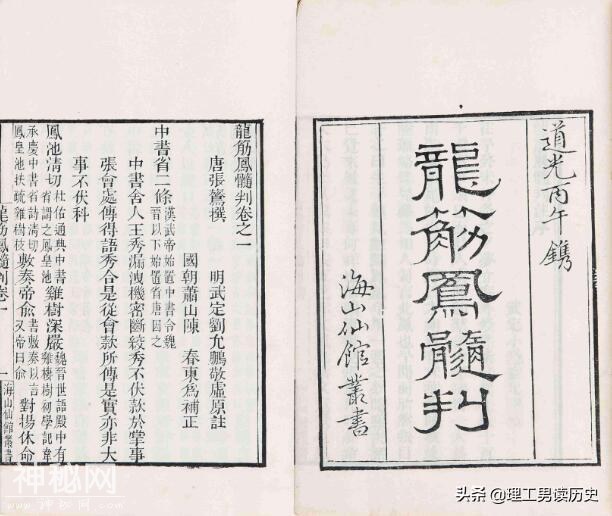 道光丙午鐫
龍筋鳳髓判
海山仙館叢書
龍筋鳳髓判卷之一
唐張鷟撰 明武定劉允鵬敬虛原註
國朝蕭山陳 春東爲補正
中書省二條 漢武帝始置中書令魏晉以下始置省唐因之
中書舍人王秀漏洩機密斷絞秀不伏款於掌事
張會處傳得語秀合是從會款所傳是實亦非大
事不伏科
鳳池清切 杜佑通典中書省謂之鳳凰池 雞樹深嚴 魏晉世語殿中有雞棲樹初學記韋
承慶中書省詩清切鳳皇池扶疏雞樹枝 敷奏帝俞 書敷奏以言又帝曰俞 對揚休命
龍筋鳳髓判卷一 一 海山仙館叢書
神秘网
头条 @理工男读历史